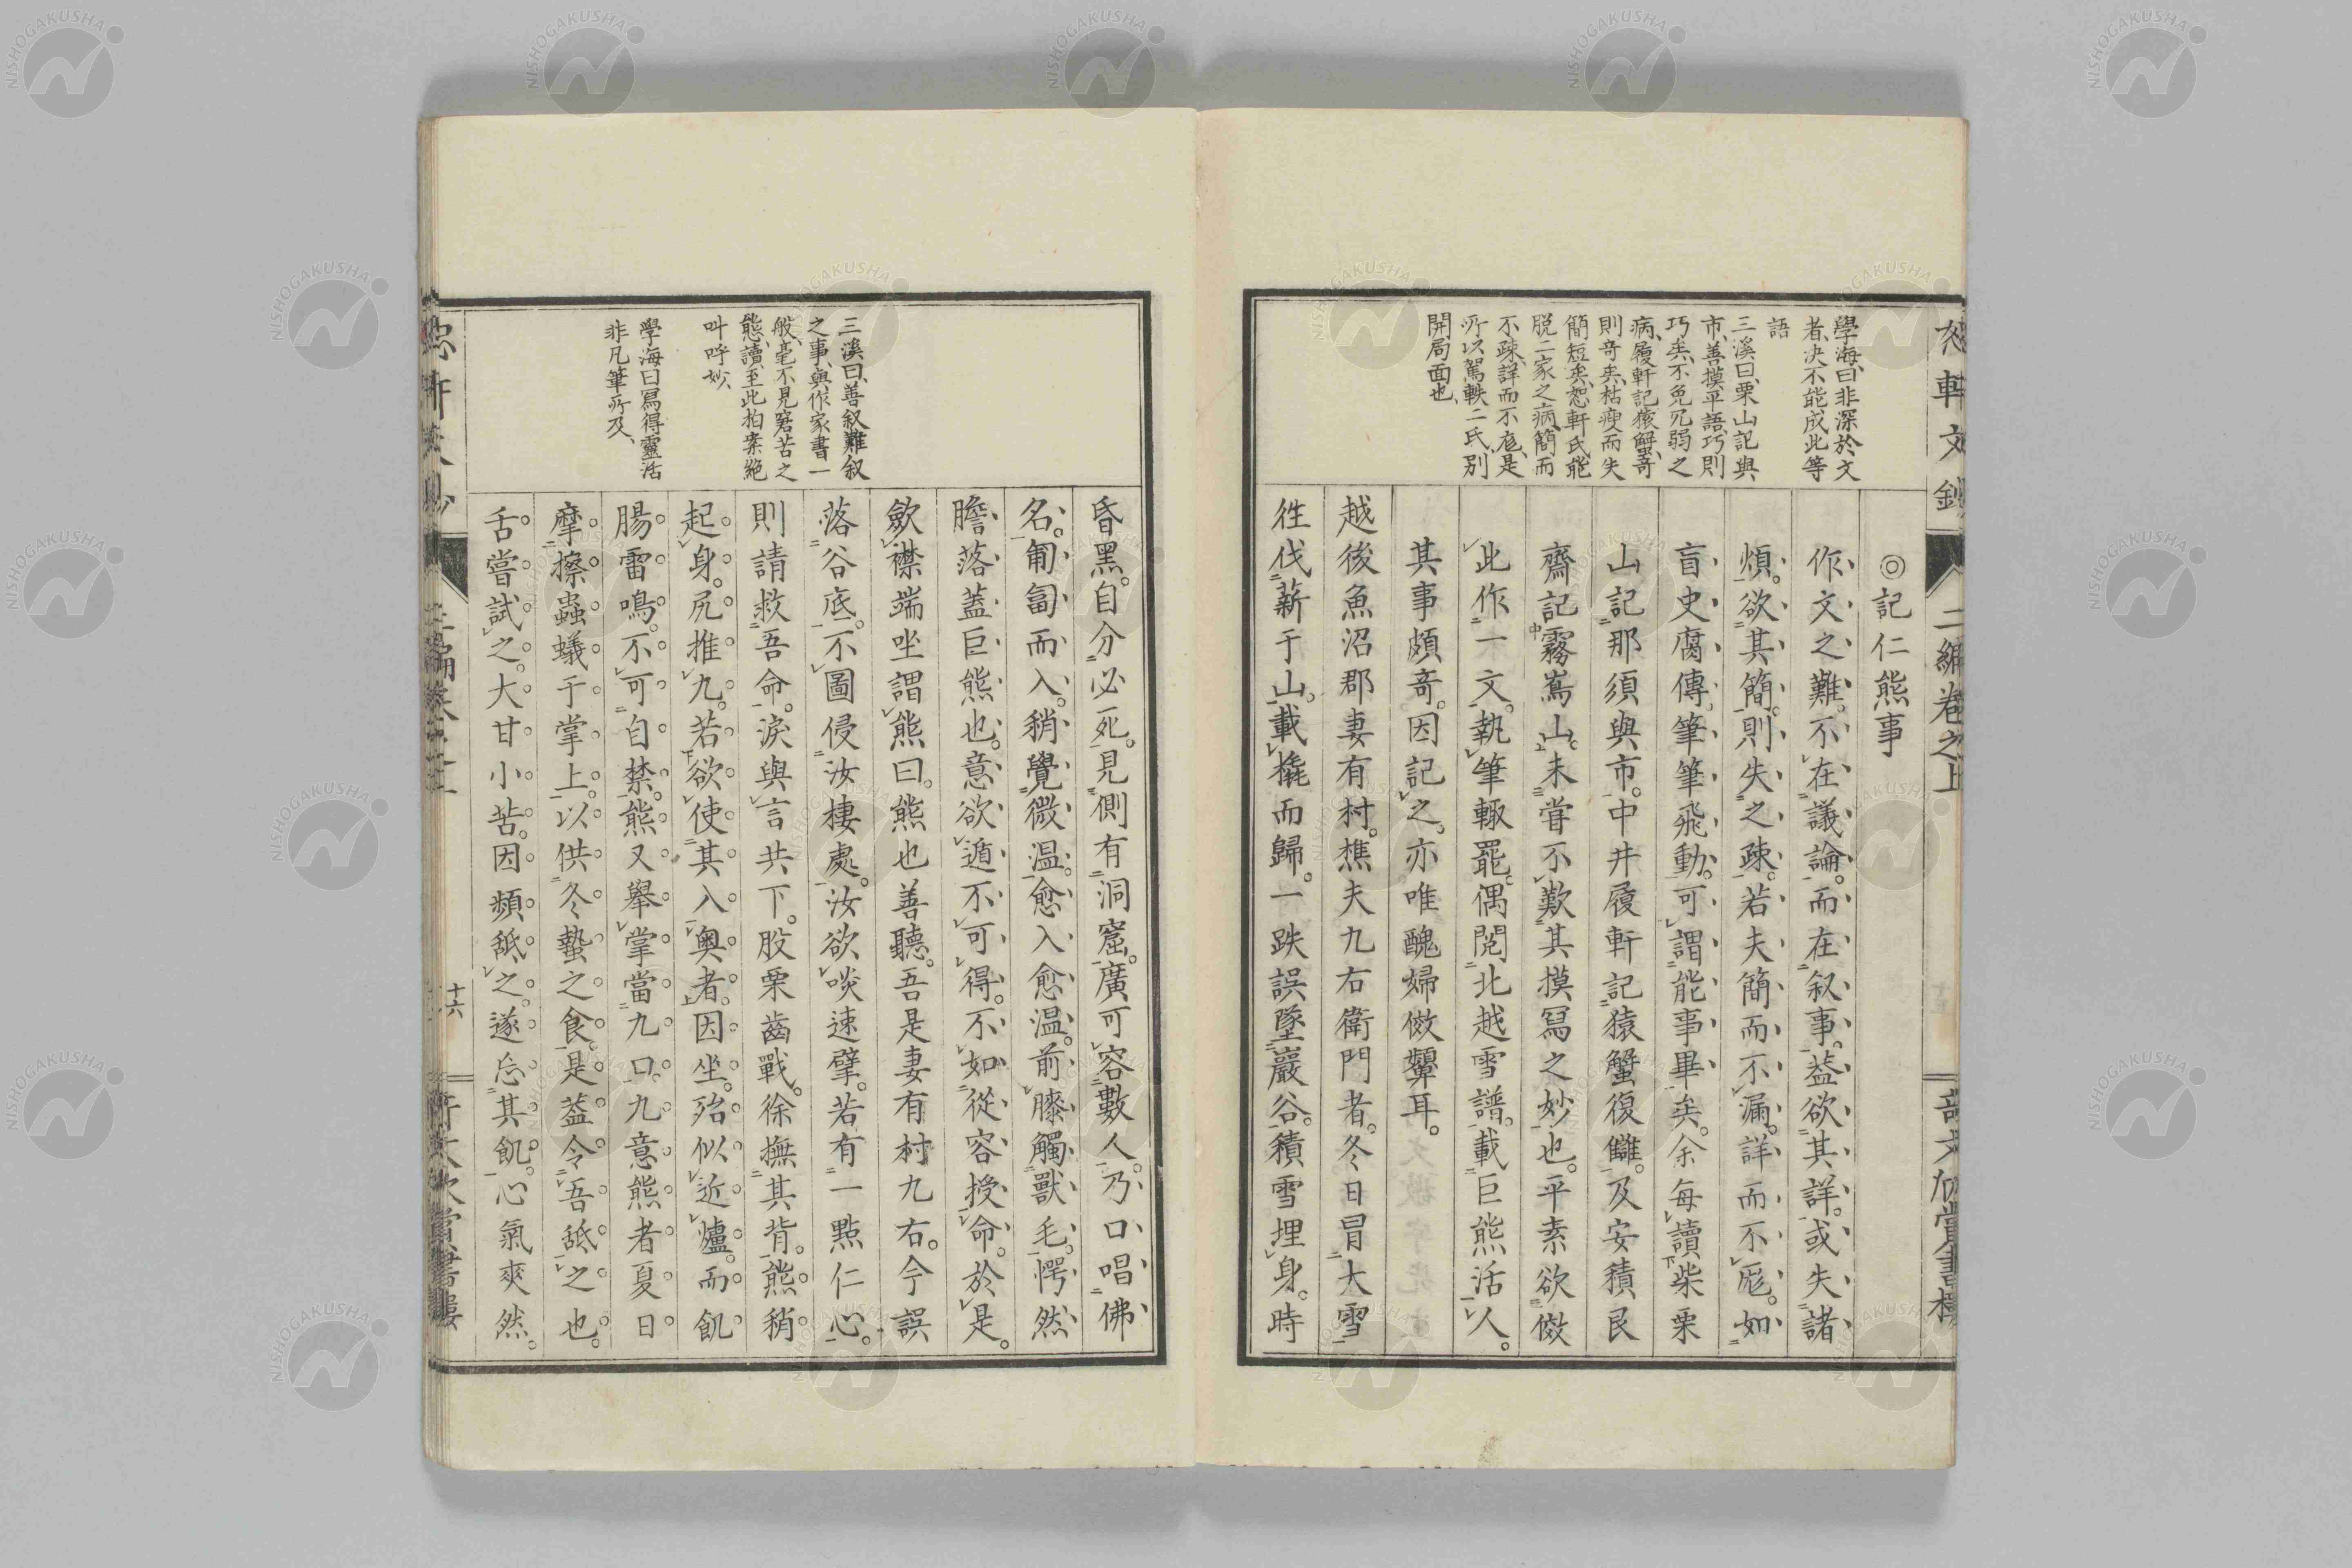 恕軒文鈔 二編卷之上
學海曰、非深於文
者、決不能成此等
語
三溪曰、栗山記與
市、善摸平語、巧則
巧矣、不免冗弱之
病、履軒記猿蟹、奇
則奇矣、枯瘦而失
簡短矣、恕軒氏能
脱二家之病、簡而
不疎、詳而不尨、是
所以駕軼二氏、別
開局面也、
◎記仁熊事
作文之難。不在議論。而在叙事。蓋欲其詳。或失諸
煩。欲其簡。則失之疎。若夫簡而不漏。詳而不尨。如
盲史腐傳。筆筆飛動。可謂能事畢矣。余每讀柴栗
山記那須與市。中井履軒記猿蟹復讎。及安積艮
齋記霧嶌山。未甞不歎其摸寫之妙也。平素欲傚
此作一文。執筆輙罷。偶閱北越雪譜。載巨熊活人。
其事頗奇。因記之。亦唯醜婦傚顰耳。
越後魚沼郡妻有村。樵夫九右衛門者。冬日冒大雪
徃伐薪于山。載橇而歸。一跌誤墜巖谷。積雪埋身。時
三溪曰、善叙難叙
之事、與作家書一
般、毫不見窘苦之
態、讀至此拍案絶
叫呼妙、
學海曰寫得靈活
非凡筆所及、
昏黑。自分必死。見側有洞窟。廣可容數人。乃口唱佛
名。匍匐而入。稍覺微温。愈入愈温。前膝觸獸毛。愕然
膽落。蓋巨熊也。意欲遁不可得。不如從容授命。於是。
歛襟端坐謂熊曰。熊也善聽。吾是妻有村九右。今誤
落谷底。不圖侵汝棲處。汝欲啖速擘。若有一點仁心。
則請救吾命。涙與言共下。股栗齒戰。徐撫其背。熊稍
起身。尻推九。若欲使其入奧者。因坐。殆似近爐。而飢
腸雷鳴。不可自禁。熊又舉掌當九口。九意熊者夏日
摩擦蟲蟻于掌上。以供冬蟄之食。是蓋令吾舐之也。
舌嘗試之。大甘小苦。因頻舐之。遂忘其飢。心氣爽然。
十六